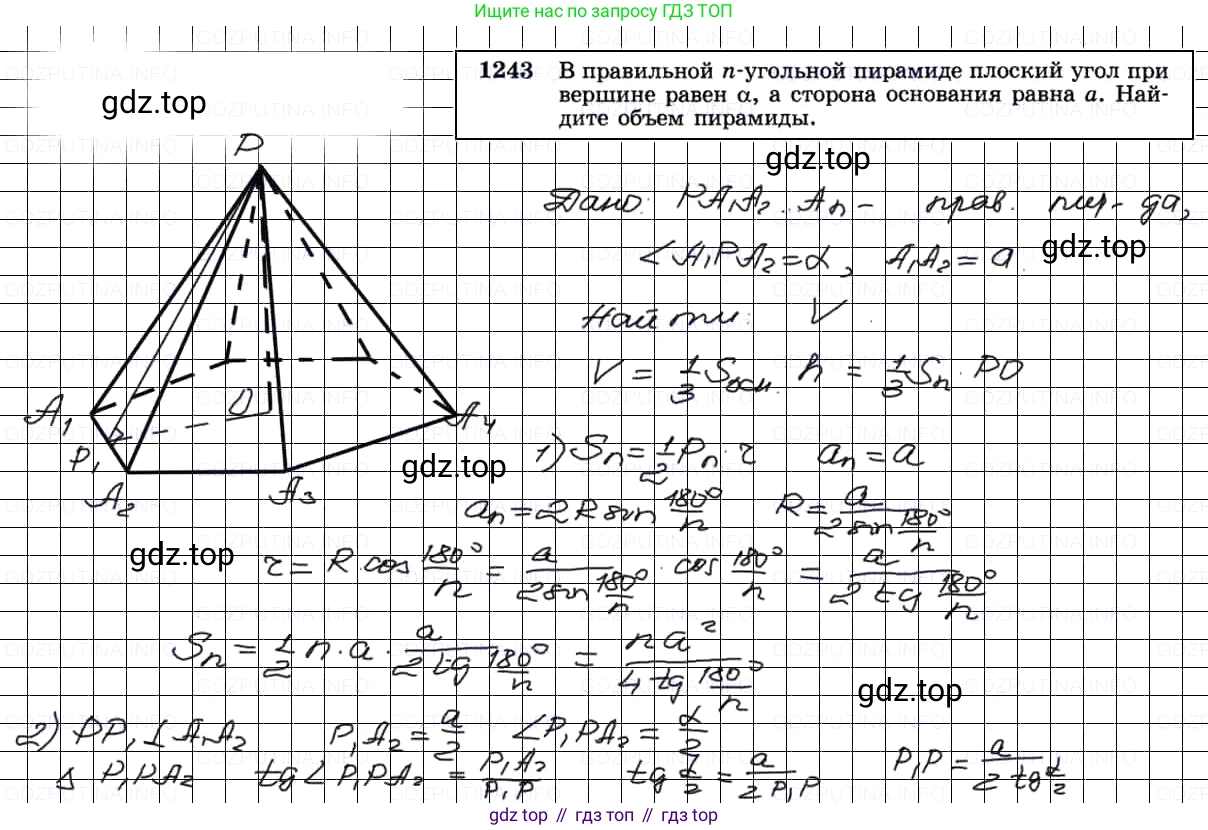 Ищите нас по запросу ГДЗ ТОП
1243 В правильной n-угольной пирамиде плоский угол при
вершине равен α, а сторона основания равна a. Най-
дите объем пирамиды.
gdz.top
gdz.top
P
Дано: PA₁A₂...Aₙ - прав. пир-да,
∠A₁PA₂ = α, A₁A₂ = a.
gdz.top
Найти: V
V = 1/3 Sосн. h = 1/3 Sₙ · PO
A₁ O A₄
P₁
A₂ A₃
gdz.top
1) Sₙ = 1/2 Pₙ · r aₙ = a
aₙ = 2R sin 180°/n R = a/(2 sin 180°/n)
gdz.top
r = R cos 180°/n = a/(2 sin 180°/n) · cos 180°/n = a/(2 tg 180°/n)
Sₙ = 1/2 n · a · a/(2 tg 180°/n) = na²/(4 tg 180°/n)
gdz.top
2) PP₁ ⊥ A₁A₂ P₁A₂ = a/2 ∠P₁PA₂ = α/2
Δ P₁PA₂ tg∠P₁PA₂ = P₁A₂/P₁P tg α/2 = a/(2 P₁P) P₁P = a/(2 tg α/2)
gdz.top // гдз топ // gdz.top